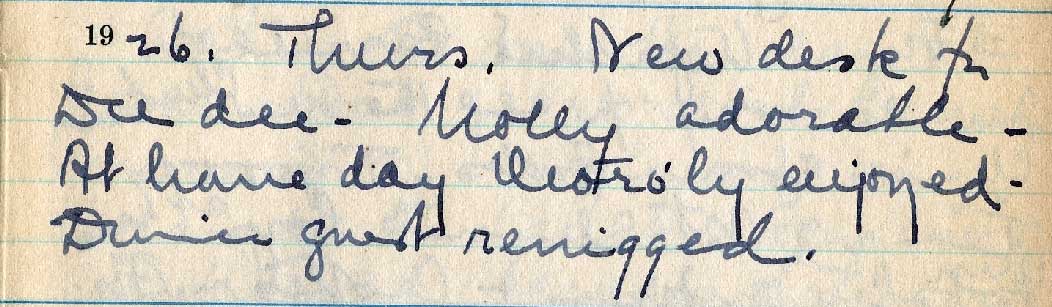 1926. Thurs. New desk for
Dee dee - Molly adorable -
At home day thoro'ly enjoyed -
Dinner guest renigged.